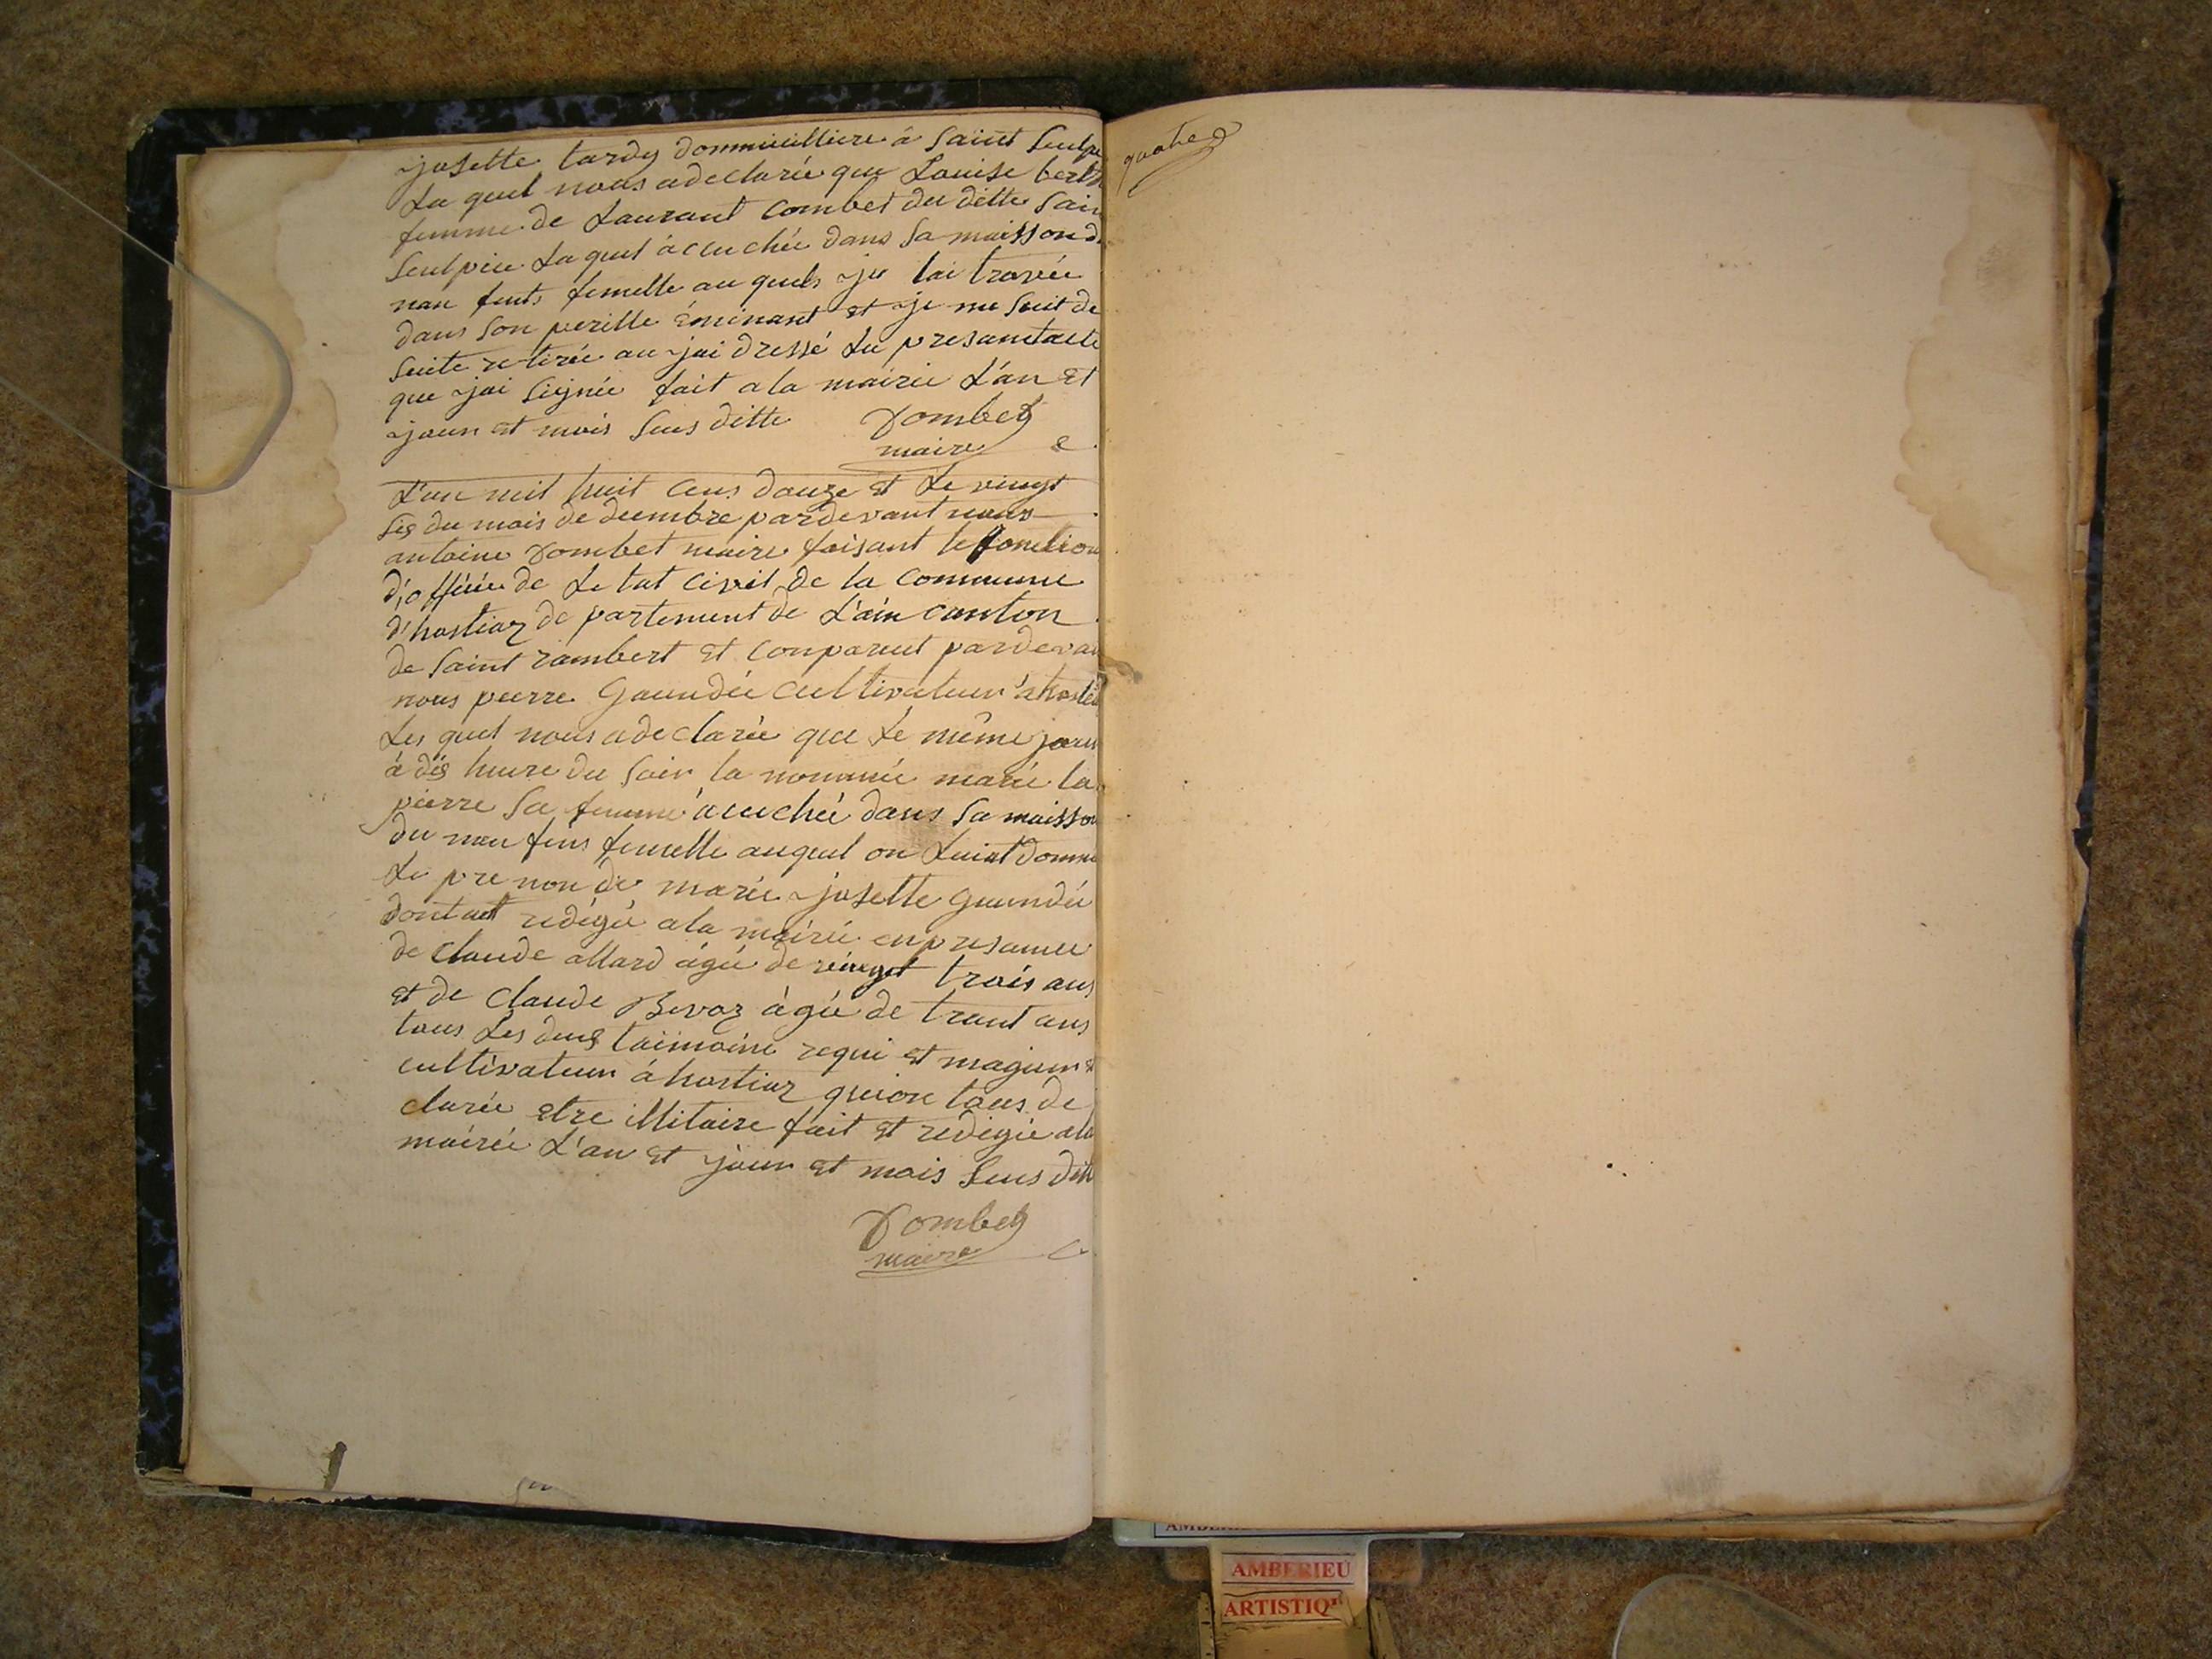 josette tardy dommicilliere á Saint Seulpi
La quel nous adeclarée que Louise bert
femme de Laurant Combet du ditte Sain
Seulpice Laquel ácuchée dans sa maisson d
nau fents femelle au quels je lai trovée
dans Son perille éminant et je me suit de
suite retirée au jai dressé Le presantacte
que jai Signée fait a la mairie L'an et
jour et mois Sus ditte Dombet
maire
L'an mil huit Cens douze et Le vingt
sis du mois de decembre pardevant nous
antoine Dombet maire faisant le fonction
d'officie de Le tat Civil de la Commune
d'hostiaz de partement de L'ain canton
de Saint rambert et Conparut pardevan
nous pierre Gaundée Cultivateur à hostia
Les quel nous adeclarée que Le même jour
à dis heure du Soir la nommée marie la
pierre Sa femme ácuchée dans Sa maisson
du nau fens femelle auquel on Luiat donné
Le pre non de marie josette Gaundée
dontact redigée a la mairie en presance
de Claude allard ágée de vingt trois ans
et de Claude Bevoz ágée de trant ans
tous Les deus taimoins requi et magieur et
cultivateur á hostiaz quion tous de
clarée etre illitaire fait et redigée ala
mairie L'an et jour et mois Sus ditt
Dombet
maire
quatre
AMBERIEU
ARTISTIQ